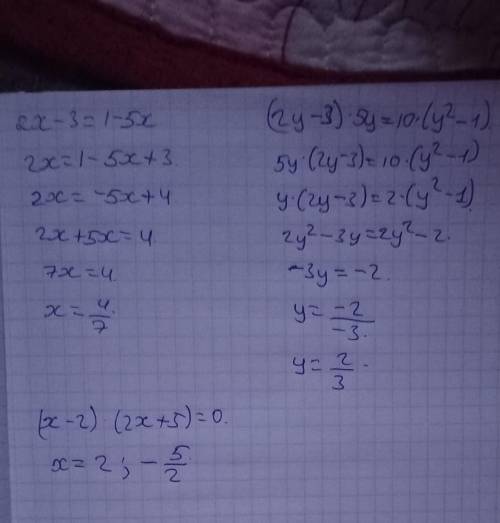 2x-3=1-5x
2x=1-5x+3
2x=-5x+4
2x+5x=4
7x=4
x=4/7
(2y-3)·5y=10·(y²-1)
5y·(2y-3)=10·(y²-1)
y·(2y-3)=2·(y²-1)
2y²-3y=2y²-2
-3y=-2
y=-2/-3
y=2/3
(x-2)·(2x+5)=0
x=2;-5/2